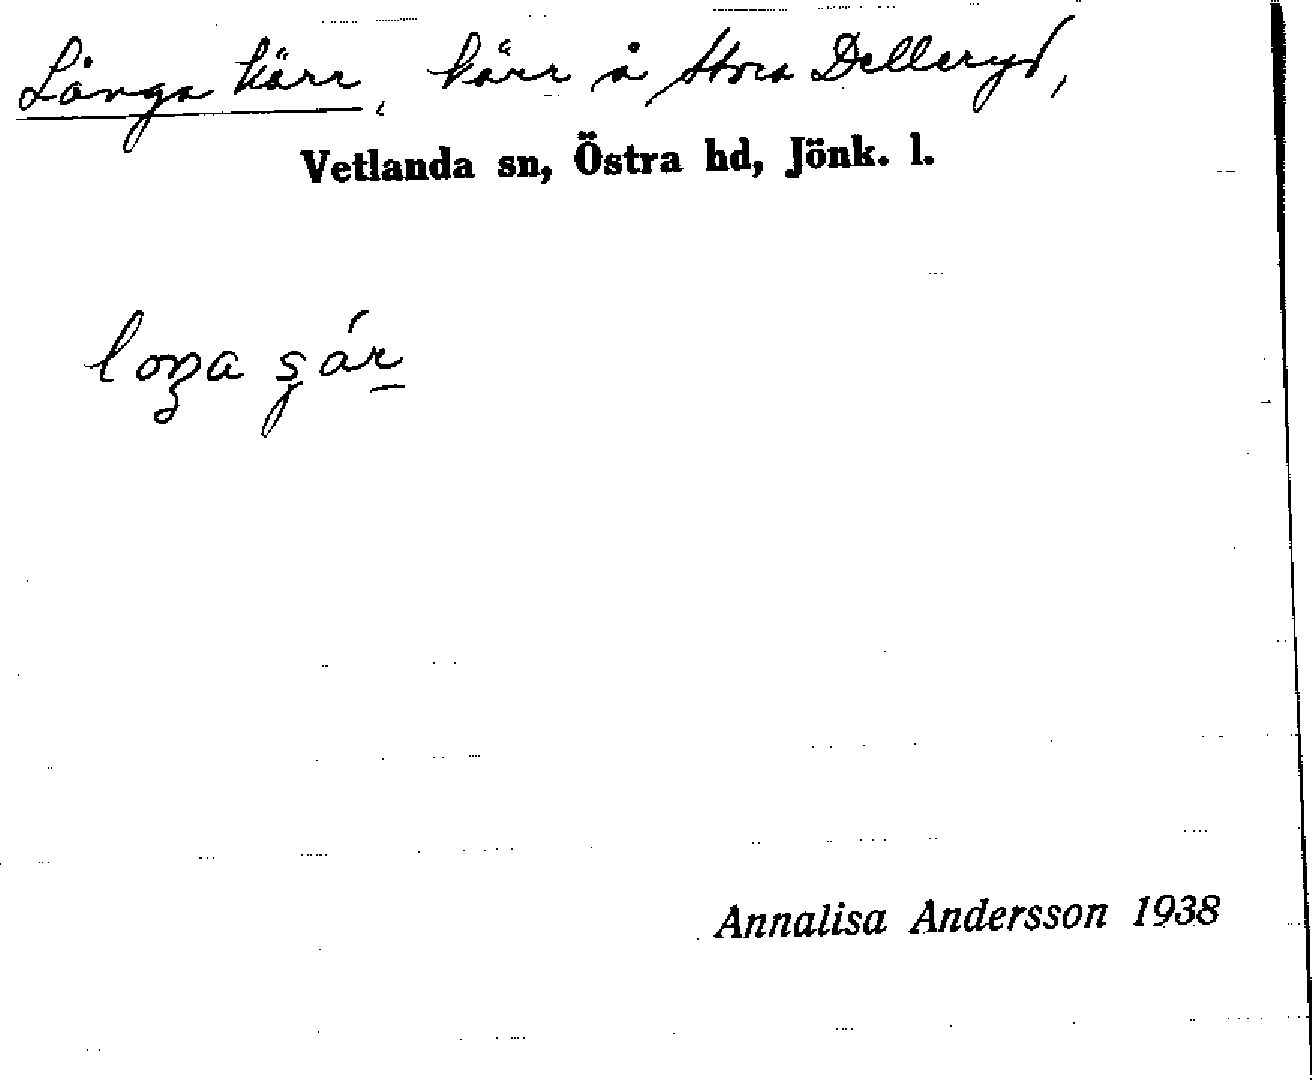 Långa kärr, kärr å Stora Delleryd,
Vetlanda sn, Östra hd, Jönk. l.
Annalisa Andersson 1938